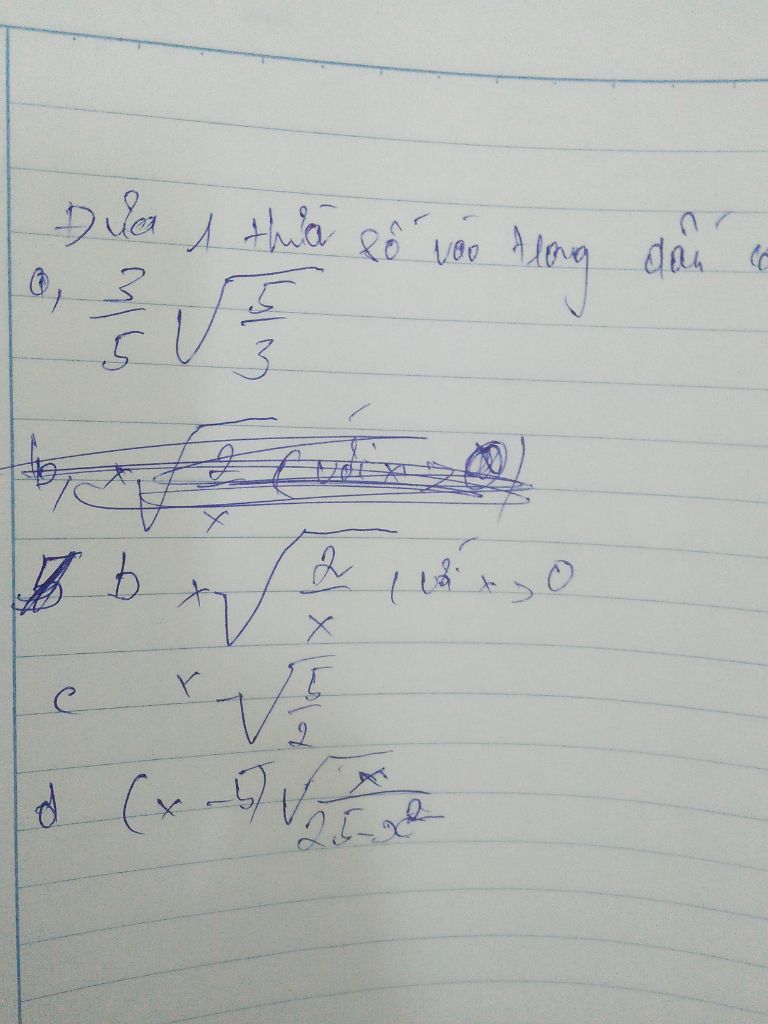 Đưa 1 thừa số vào trong dấu
a, 3/5 √(5/3)
b, x√(2/x) (với x > 0)
b x√(2/x) (với x > 0
c x√(5/2)
d (x - 5)√(x/(25-x²))